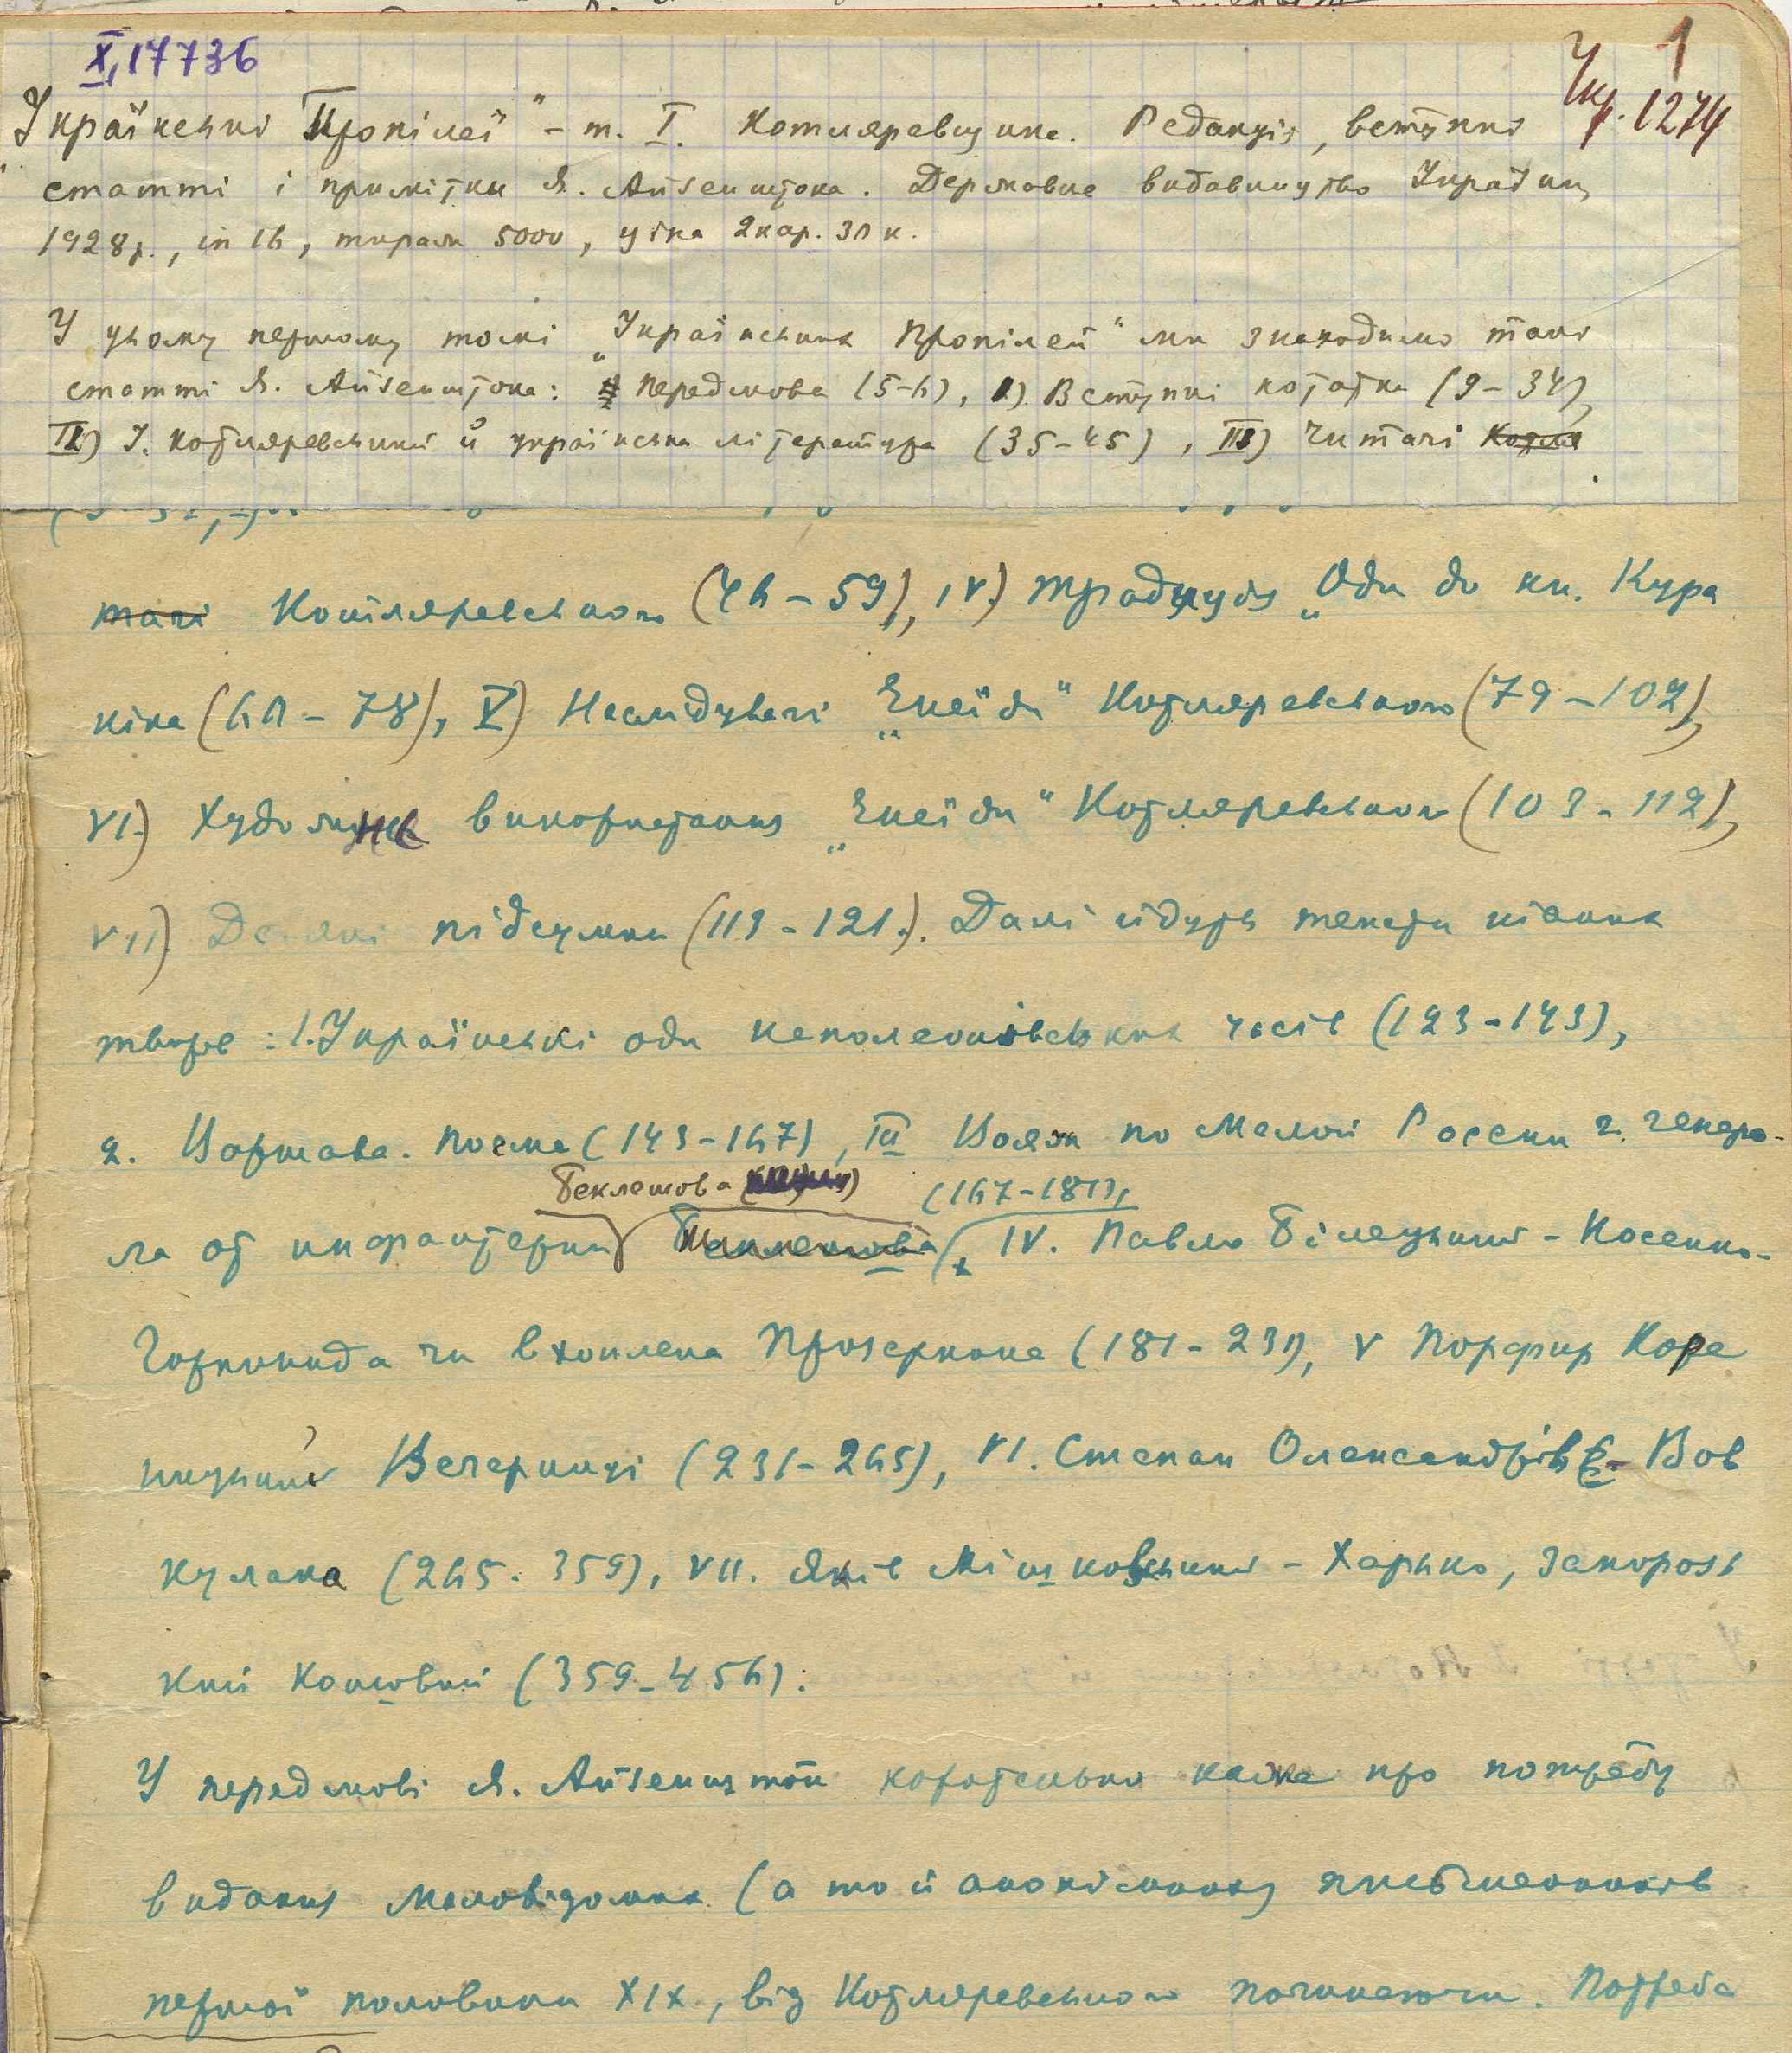 X,17736
1
Укр. 1274
„Українські Пропілеї" – т. I. Котляревщина. Редакція, вступні
статті і примітки Я. Айзенштока. Державне видавництво України,
1928 р., in 16, тираж 5000, ціна 2 кар. 30 к.
У цьому першому томі „Українських Пропілеїв" ми знаходимо такі
статті Я. Айзенштока: Передмова (5–6), I) Вступні нотатки (9–34),
II) І. Котляревський й українська література (35–45), III) Читачі Котля
тачі Котляревського (46–59), IV) Традиція „Оди до кн. Кура
кіна (60–78), V) Наслідувачі „Енеїди" Котляревського (79–102),
VI) Художнє використання „Енеїди" Котляревського (103–112),
VII) Деякі підсумки (113–121). Далі йдуть тексти різних
творів: 1. Українські оди наполеонівських часів (123–143),
2. Варшава. Поема (143–167), III Вояж по Малой России г. генера-
Беклешова (167–181),
ла от инфантерии Беклешова, IV. Павло Білецький-Носенко-
Горпинида чи вхоплена Прозерпина (181–231), V Порфир Коре
ницький Вечерниці (231–265), VI. Степан Олександрів – Вов
кулака (265–359), VII. Яків Мішковський – Харько, запорозь
кий кошовий (359–456).
У передмові Я. Айзеншток коротенько каже про потребу
видання маловідомих (а то й анонімних) письменників
першої половини XIX, від Котляревського починаючи. Потреба